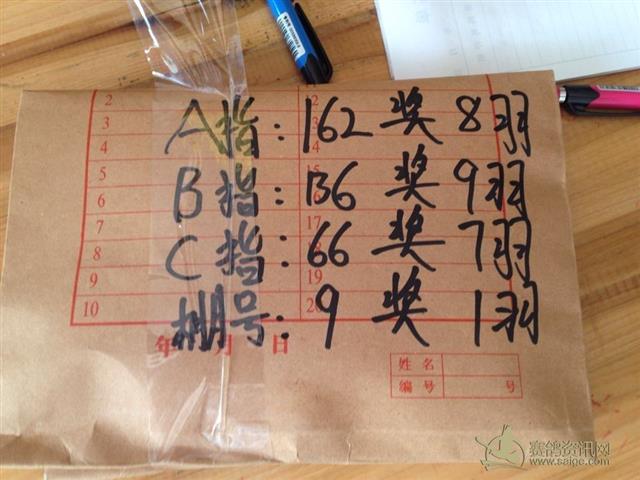 A指:162奖8羽
B指:136奖9羽
C指:66奖7羽
棚号:9奖1羽
2
3
4
5
6
7
8
9
10
12
14
17
19
年 月 日
姓名
编号 号
赛鸽资讯网
www.saige.com